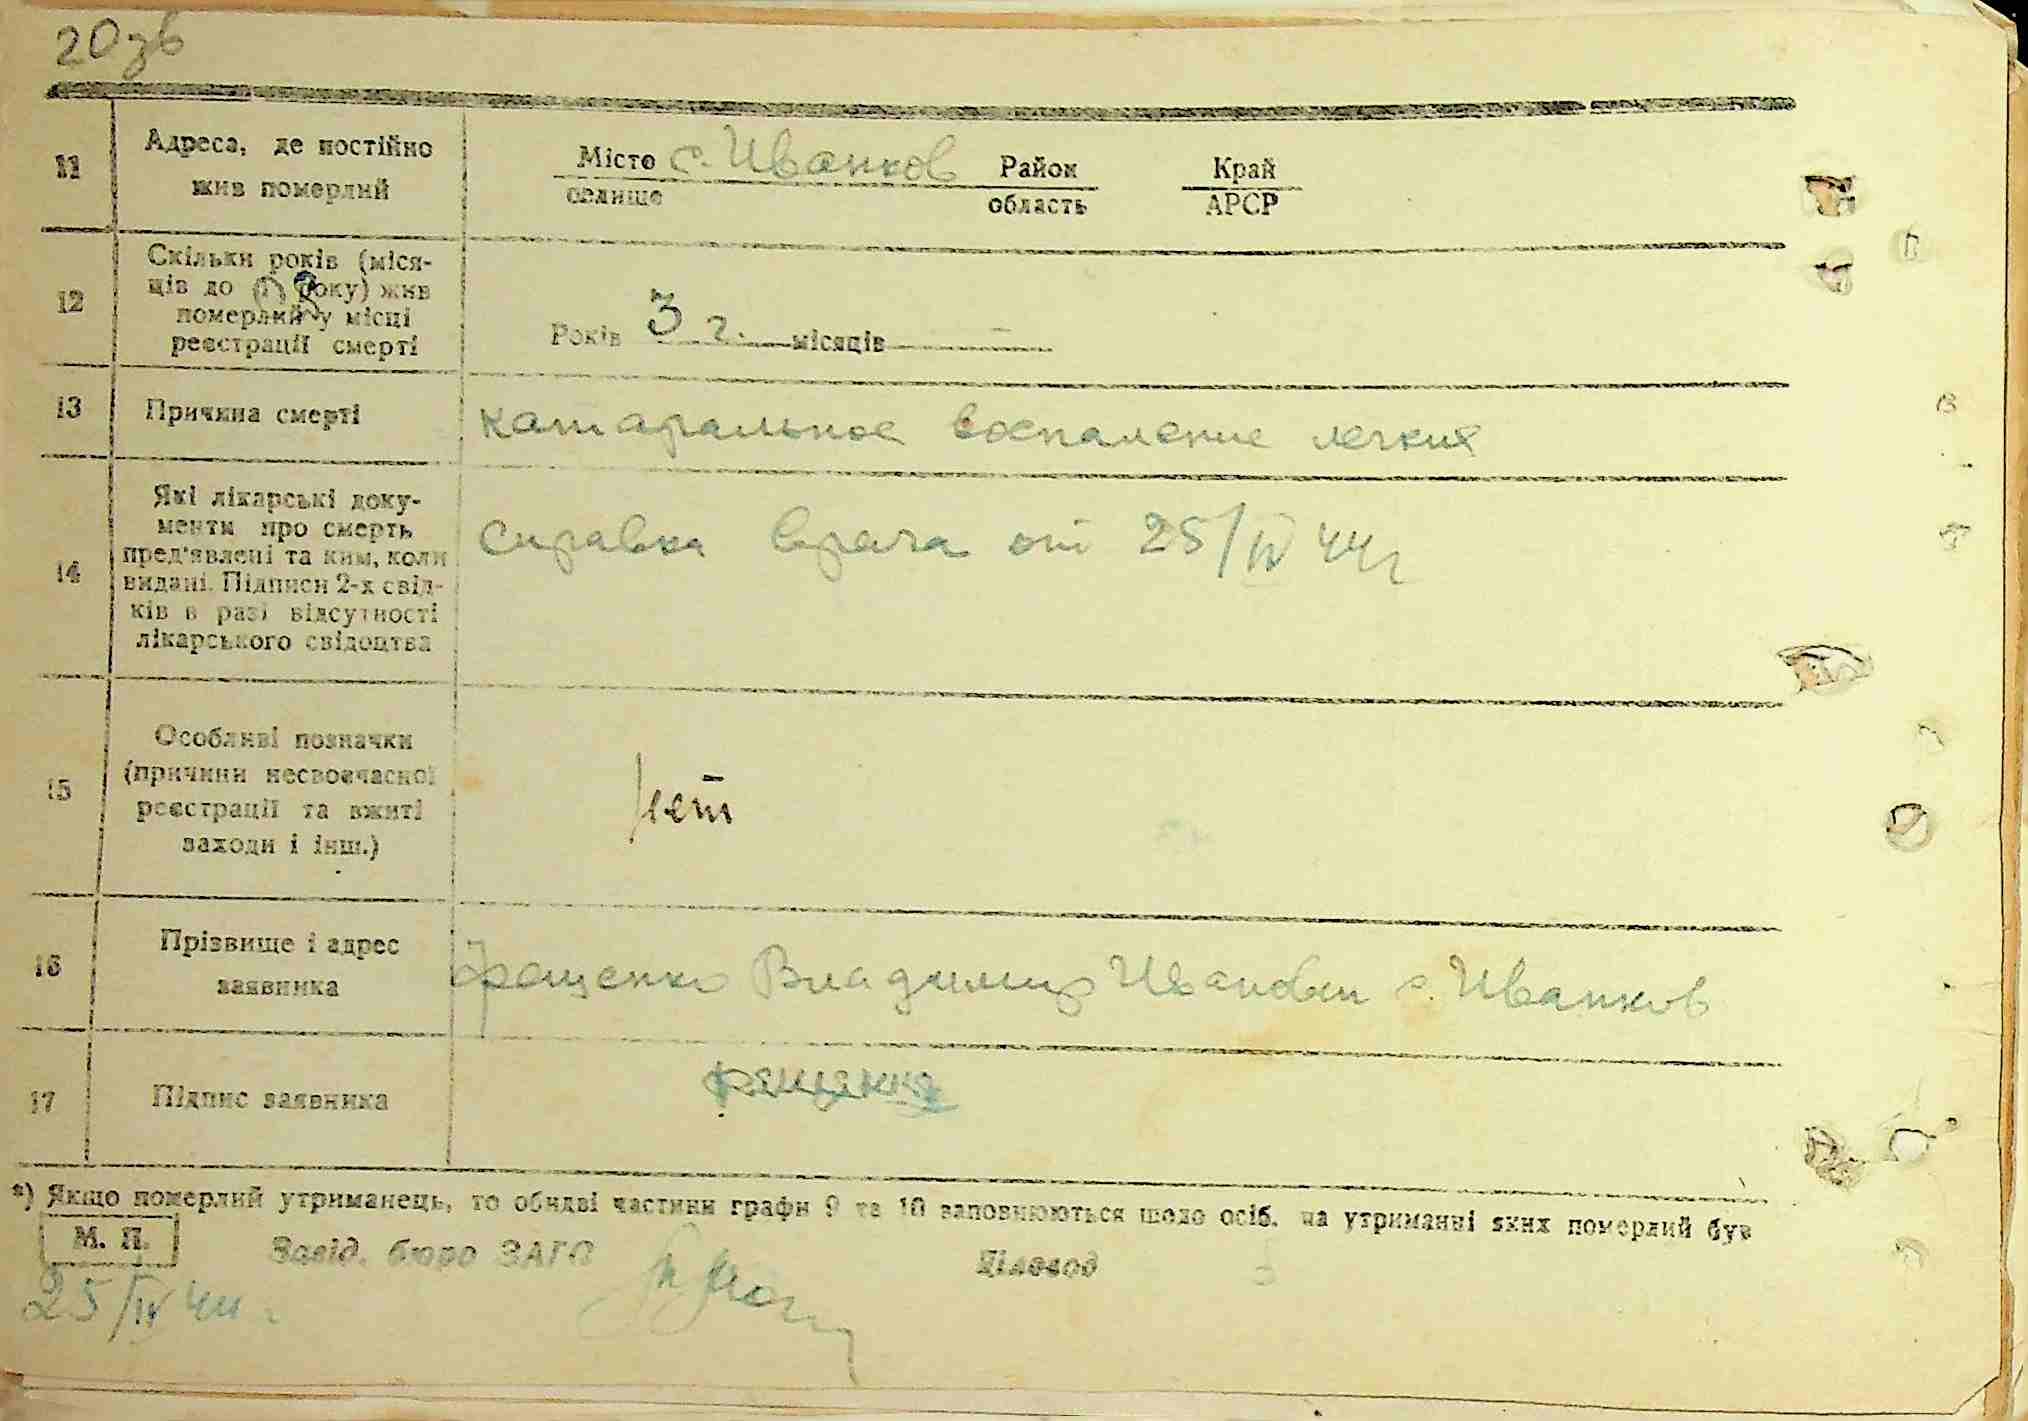 20зв
11
Адреса, де постійно
жив померлий
Місто с. Иванков Район Край
селище область АРСР
12
Скільки років (міся-
ців до 1 року) жив
померлий у місці
реєстрації смерті
Років 3 г. місяців —
13
Причина смерті
катаральное воспаление легких
14
Які лікарські доку-
менти про смерть
пред'явлені та ким, коли
видані. Підписи 2-х свід-
ків в разі відсутності
лікарського свідоцтва
справка врача от 25/IV 44 г
15
Особливі позначки
(причини несвоєчасної
реєстрації та вжиті
заходи і інш.)
Нет
16
Прізвище і адрес
заявника
Фращенко Владимир Иванович с. Иванков
17
Підпис заявника
*) Якщо померлий утриманець, то обидві частини графи 9 та 10 заповнюються щодо осіб, на утриманні яких померлий був
М. П.
Завід. бюро ЗАГС
Діловод
25/IV 44 г.